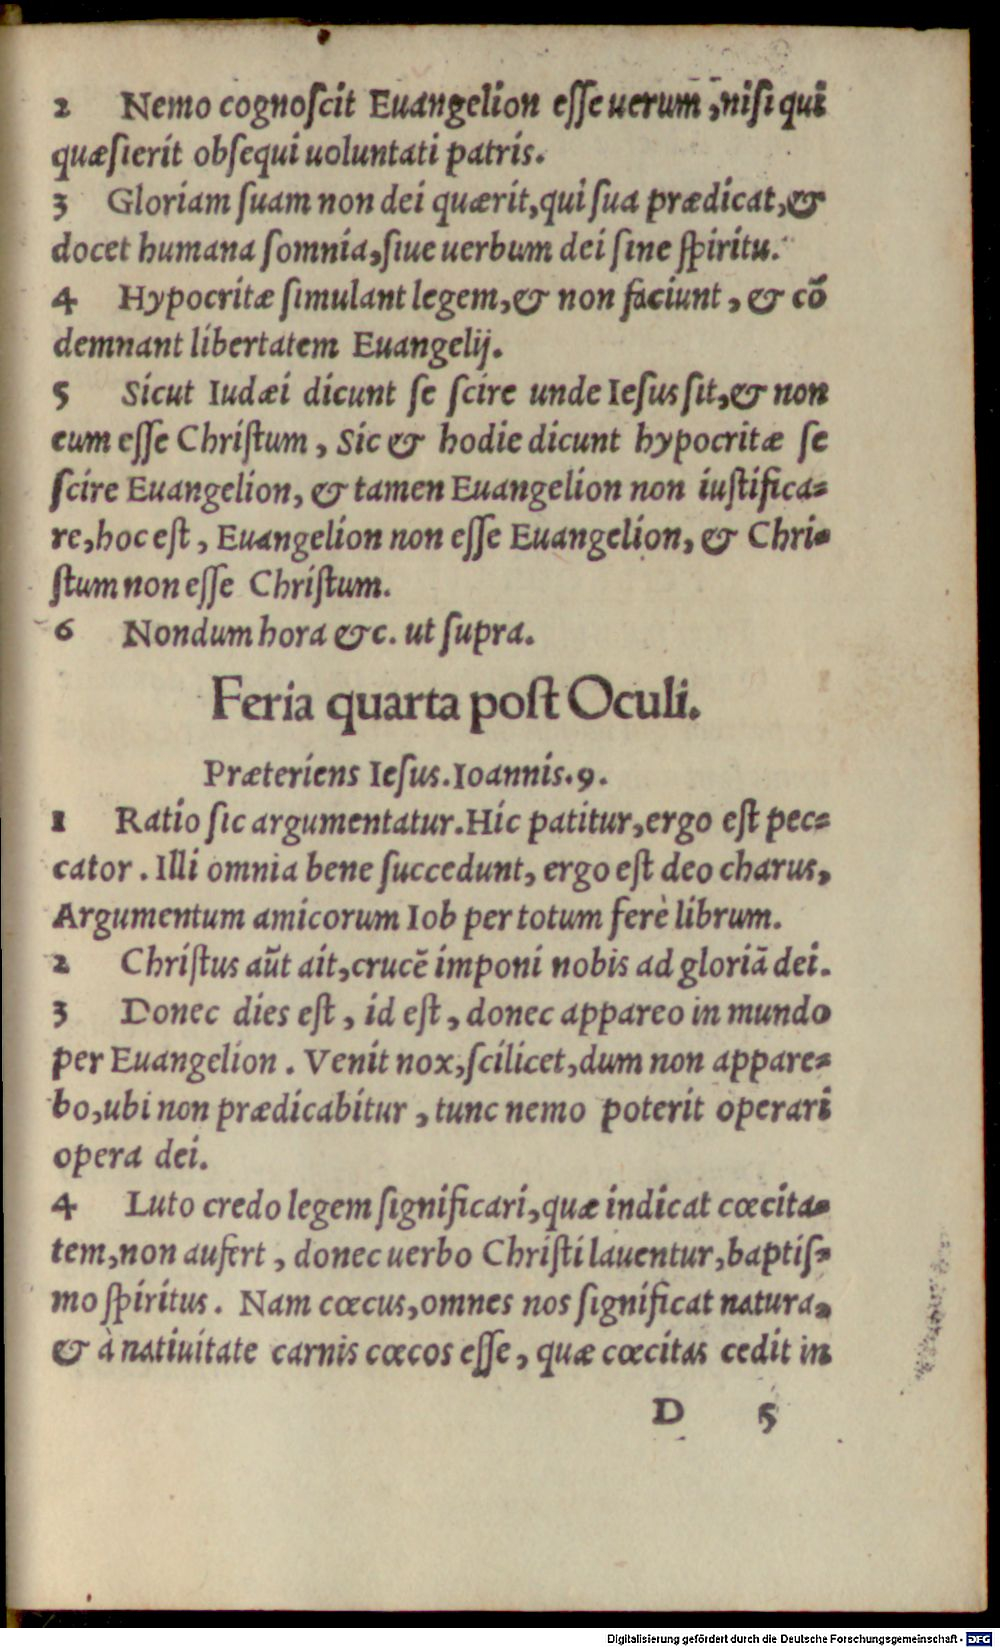 2 Nemo cognoſcit Euangelion eſſe uerum, niſi qui
quæſierit obſequi uoluntati patris.
3 Gloriam ſuam non dei quærit, qui ſua prædicat, &
docet humana ſomnia, ſiue uerbum dei ſine ſpiritu.
4 Hypocritæ ſimulant legem, & non faciunt, & cõ
demnant libertatem Euangelij.
5 Sicut Iudæi dicunt ſe ſcire unde Ieſus ſit, & non
eum eſſe Chriſtum, Sic & hodie dicunt hypocritæ ſe
ſcire Euangelion, & tamen Euangelion non iuſtifica=
re, hoc eſt, Euangelion non eſſe Euangelion, & Chri=
ſtum non eſſe Chriſtum.
6 Nondum hora &c. ut ſupra.
Feria quarta poſt Oculi.
Præteriens Ieſus. Ioannis. 9.
1 Ratio ſic argumentatur. Hic patitur, ergo eſt pec=
cator. Illi omnia bene ſuccedunt, ergo eſt deo charus,
Argumentum amicorum Iob per totum ferè librum.
2 Chriſtus aũt ait, crucẽ imponi nobis ad gloriã dei.
3 Donec dies eſt, id eſt, donec appareo in mundo
per Euangelion. Venit nox, ſcilicet, dum non appare=
bo, ubi non prædicabitur, tunc nemo poterit operari
opera dei.
4 Luto credo legem ſignificari, quæ indicat cœcita=
tem, non aufert, donec uerbo Chriſti lauentur, baptiſ=
mo ſpiritus. Nam cœcus, omnes nos ſignificat natura,
& à natiuitate carnis cœcos eſſe, quæ cœcitas cedit in
D 5
Digitalisierung gefördert durch die Deutsche Forschungsgemeinschaft - DFG